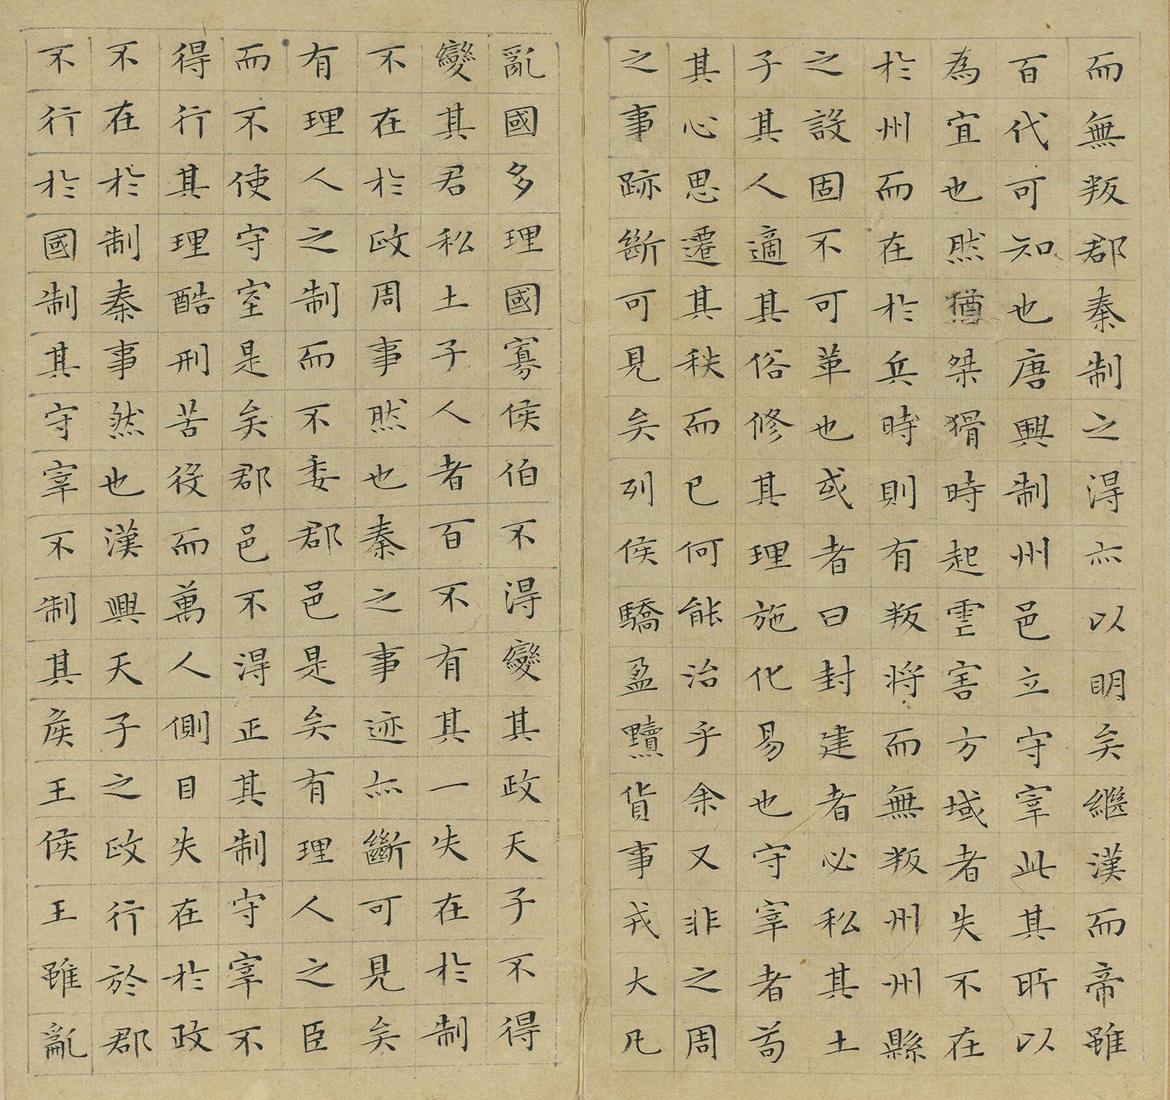 而無叛郡秦制之得亦以明矣繼漢而帝雖
百代可知也唐興制州邑立守宰此其所以
為宜也然猶桀猾時起虐害方域者失不在
於州而在於兵時則有叛將而無叛州州縣
之設固不可革也或者曰封建者必私其土
子其人適其俗修其理施化易也守宰者苟
其心思遷其秩而已何能治乎余又非之周
之事跡斷可見矣列侯驕盈黷貨事戎大凡
亂國多理國寡侯伯不得變其政天子不得
變其君私土子人者百不有其一失在於制
不在於政周事然也秦之事迹亦斷可見矣
有理人之制而不委郡邑是矣有理人之臣
而不使守室是矣郡邑不得正其制守宰不
得行其理酷刑苦役而萬人側目失在於政
不在於制秦事然也漢興天子之政行於郡
不行於國制其守宰不制其侯王侯王雖亂